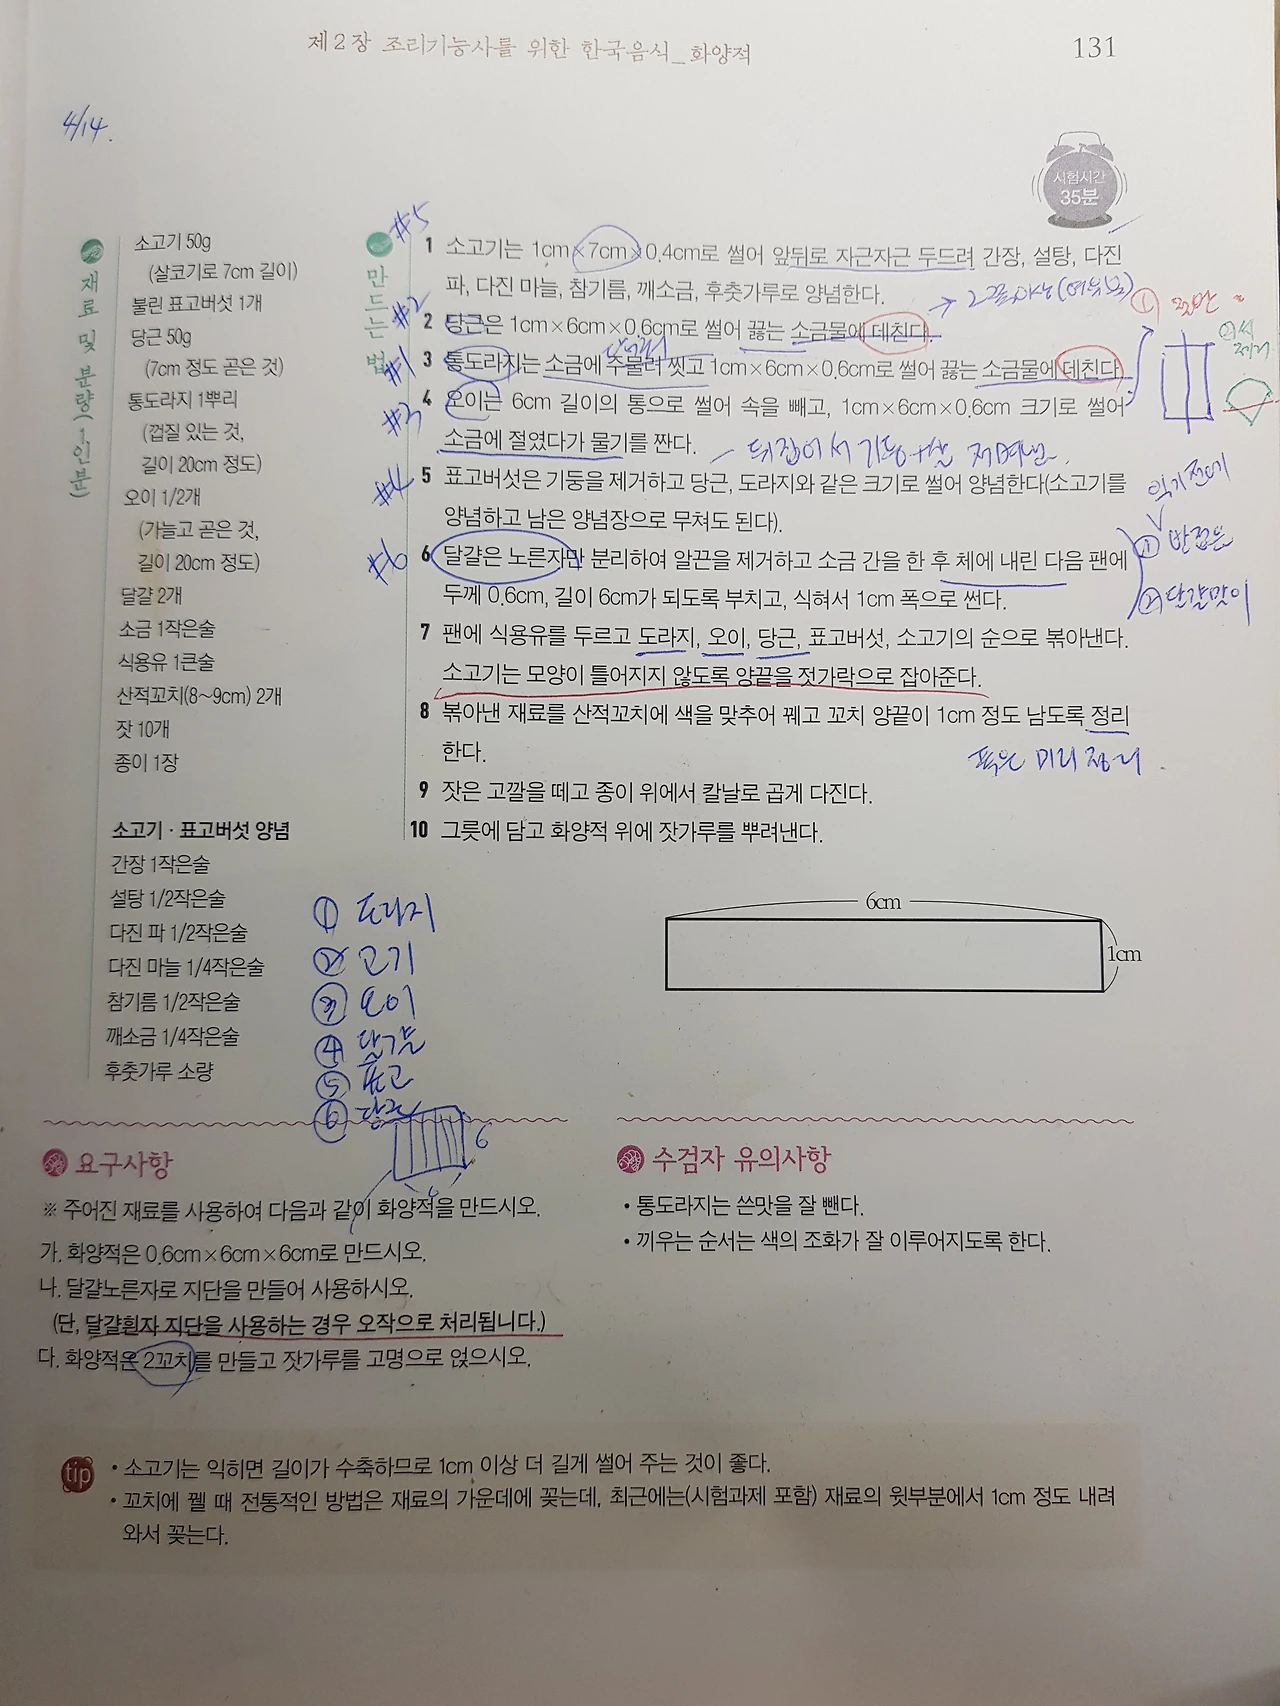 제2장 조리기능사를 위한 한국음식_화양적
131
4/14.
시험시간
35분
재료 및 분량(1인분)
소고기 50g
(살코기로 7cm 길이)
불린 표고버섯 1개
당근 50g
(7cm 정도 곧은 것)
통도라지 1뿌리
(껍질 있는 것,
길이 20cm 정도)
오이 1/2개
(가늘고 곧은 것,
길이 20cm 정도)
달걀 2개
소금 1작은술
식용유 1큰술
산적꼬치(8~9cm) 2개
잣 10개
종이 1장
소고기 · 표고버섯 양념
간장 1작은술
설탕 1/2작은술
다진 파 1/2작은술
다진 마늘 1/4작은술
참기름 1/2작은술
깨소금 1/4작은술
후춧가루 소량
① 도라지
② 고기
③ 오이
④ 달걀
⑤ 표고
⑥ 당근
6
만드는 법
#5
1 소고기는 1cm×7cm×0.4cm로 썰어 앞뒤로 자근자근 두드려 간장, 설탕, 다진
파, 다진 마늘, 참기름, 깨소금, 후춧가루로 양념한다.
#2
2 당근은 1cm×6cm×0.6cm로 썰어 끓는 소금물에 데친다.
#1
3 통도라지는 소금에 주물러 씻고 1cm×6cm×0.6cm로 썰어 끓는 소금물에 데친다.
#3
4 오이는 6cm 길이의 통으로 썰어 속을 빼고, 1cm×6cm×0.6cm 크기로 썰어
소금에 절였다가 물기를 짠다.
뒤집어서 기둥+살 저며냄.
#4
5 표고버섯은 기둥을 제거하고 당근, 도라지와 같은 크기로 썰어 양념한다(소고기를
양념하고 남은 양념장으로 무쳐도 된다).
#6
6 달걀은 노른자만 분리하여 알끈을 제거하고 소금 간을 한 후 체에 내린 다음 팬에
두께 0.6cm, 길이 6cm가 되도록 부치고, 식혀서 1cm 폭으로 썬다.
익기전에
① 반접는
② 단갈맞이
7 팬에 식용유를 두르고 도라지, 오이, 당근, 표고버섯, 소고기의 순으로 볶아낸다.
소고기는 모양이 틀어지지 않도록 양끝을 젓가락으로 잡아준다.
8 볶아낸 재료를 산적꼬치에 색을 맞추어 꿰고 꼬치 양끝이 1cm 정도 남도록 정리
한다.
폭은 미리 정리
9 잣은 고깔을 떼고 종이 위에서 칼날로 곱게 다진다.
10 그릇에 담고 화양적 위에 잣가루를 뿌려낸다.
6cm
1cm
요구사항
※ 주어진 재료를 사용하여 다음과 같이 화양적을 만드시오.
가. 화양적은 0.6cm×6cm×6cm로 만드시오.
나. 달걀노른자로 지단을 만들어 사용하시오.
(단, 달걀흰자 지단을 사용하는 경우 오작으로 처리됩니다.)
다. 화양적은 2꼬치를 만들고 잣가루를 고명으로 얹으시오.
수검자 유의사항
• 통도라지는 쓴맛을 잘 뺀다.
• 끼우는 순서는 색의 조화가 잘 이루어지도록 한다.
tip
• 소고기는 익히면 길이가 수축하므로 1cm 이상 더 길게 썰어 주는 것이 좋다.
• 꼬치에 꿸 때 전통적인 방법은 재료의 가운데에 꽂는데, 최근에는(시험과제 포함) 재료의 윗부분에서 1cm 정도 내려
와서 꽂는다.